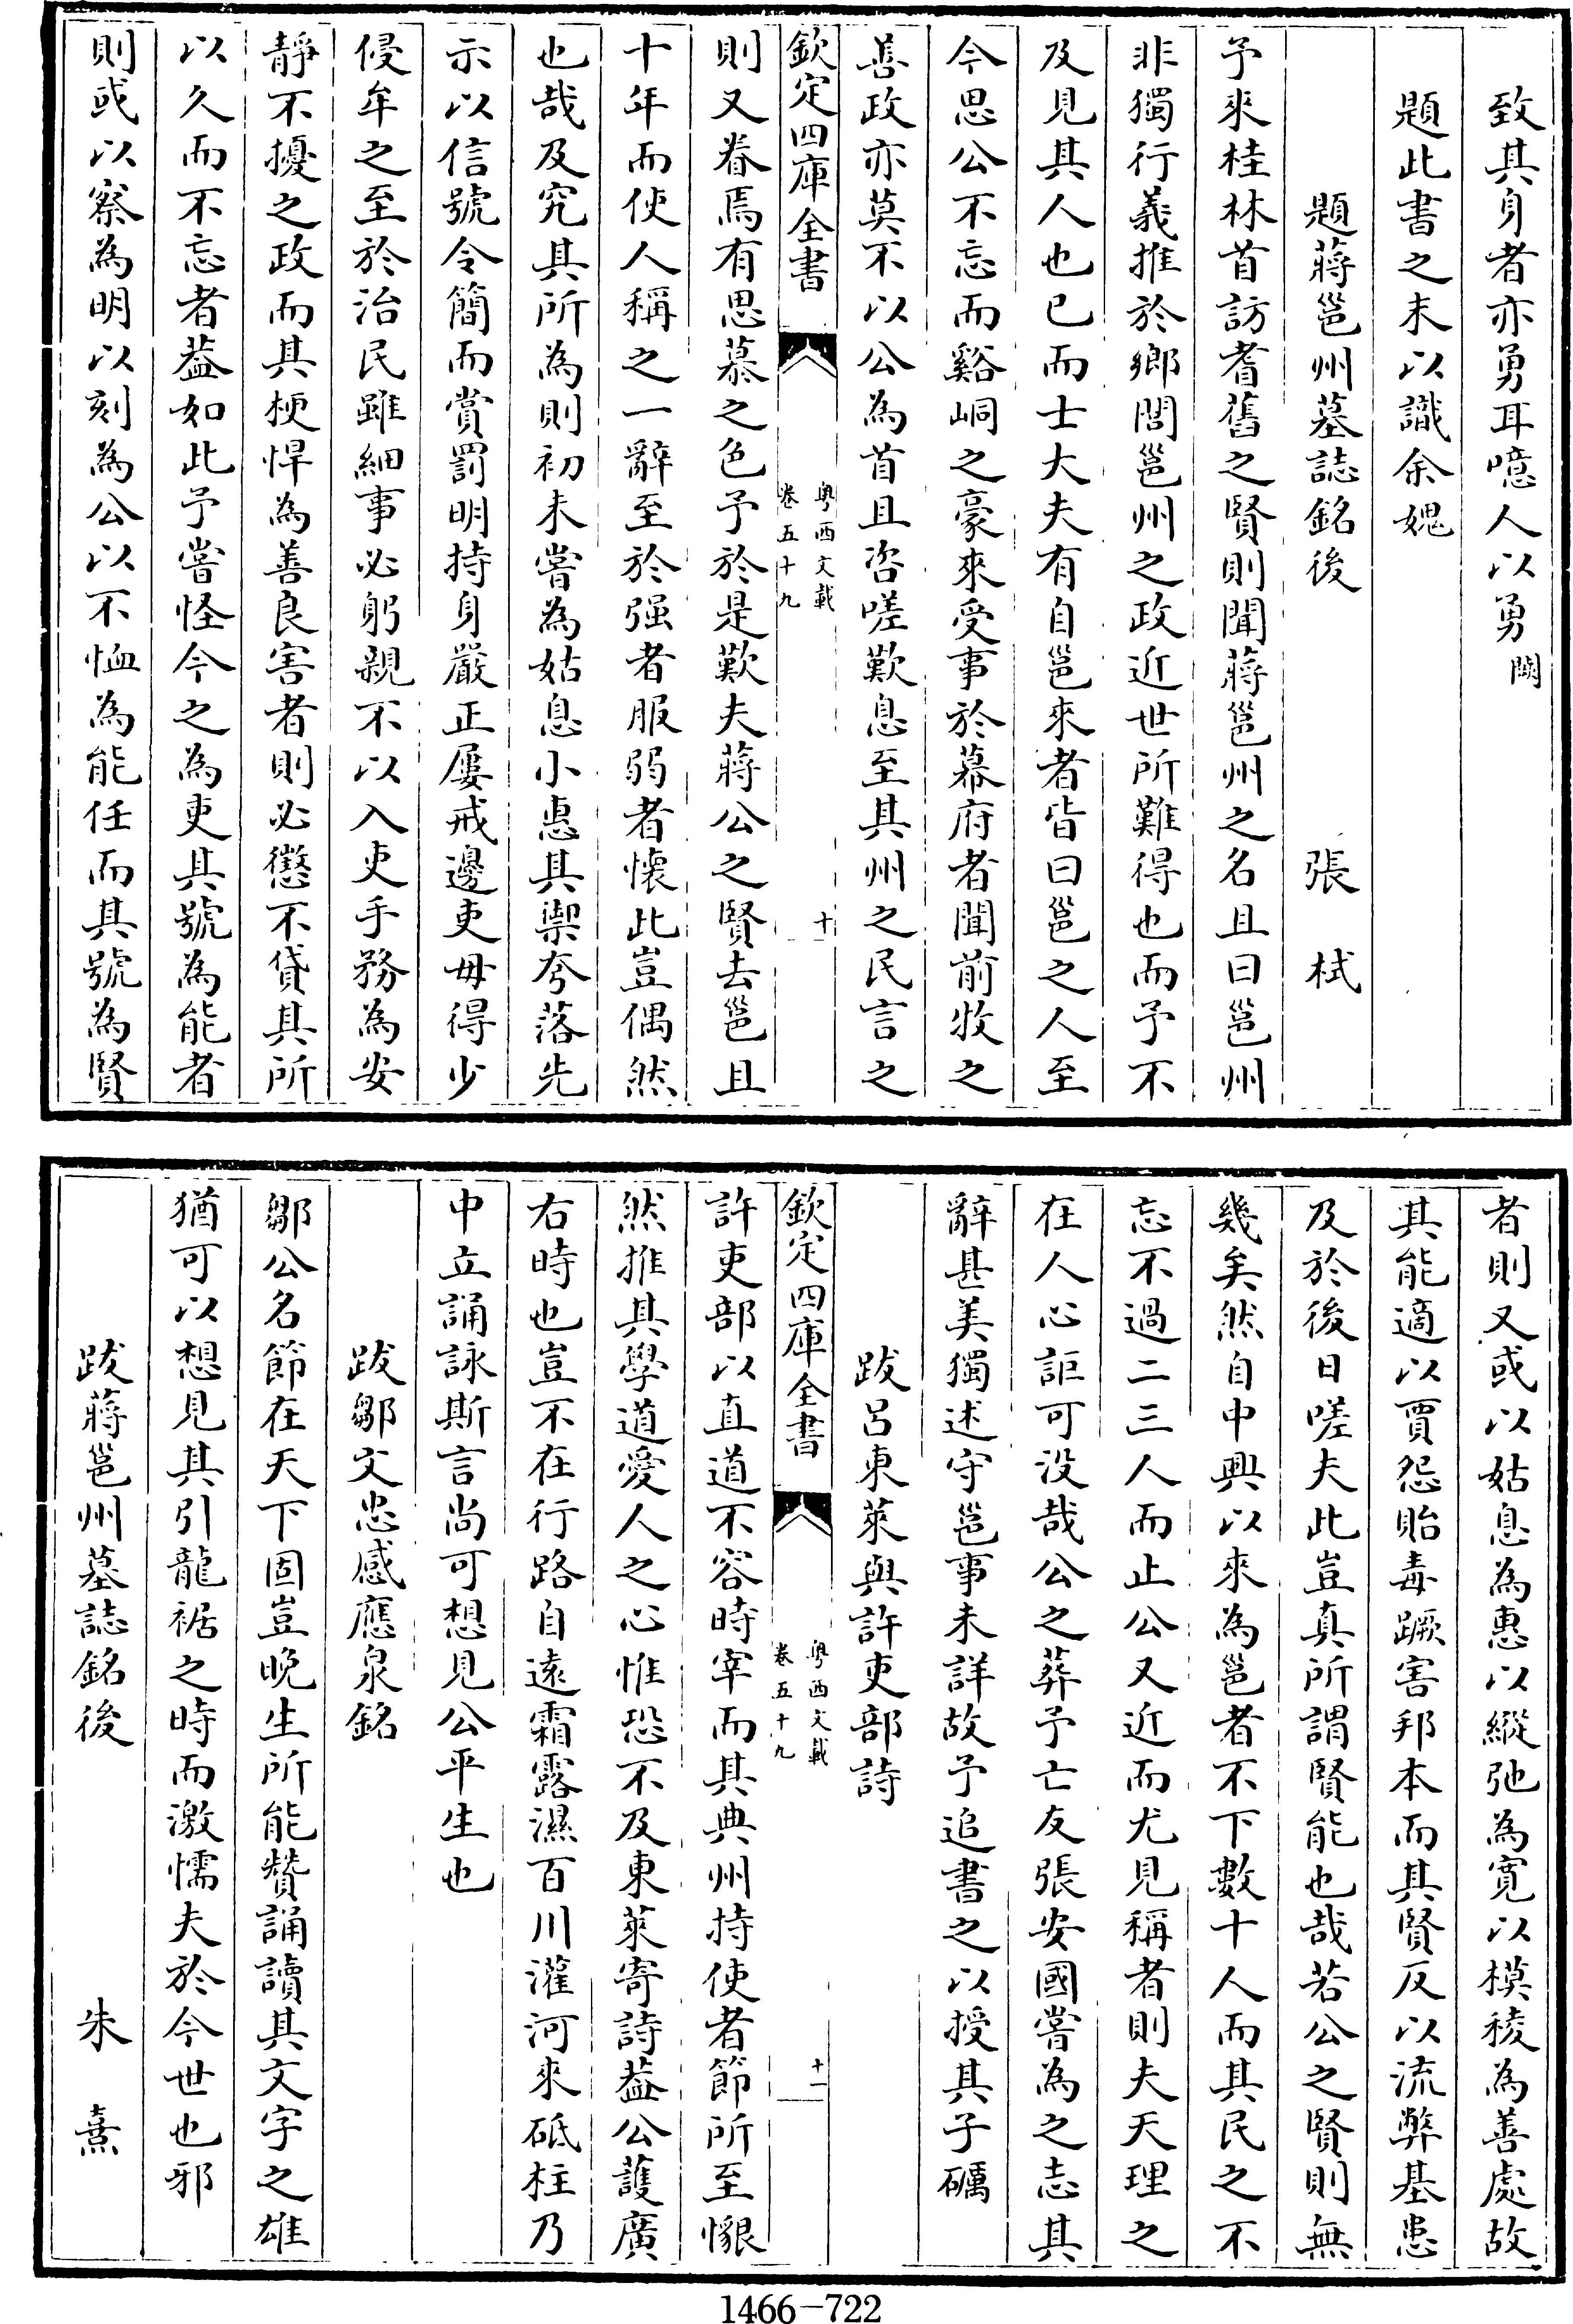 致其身者亦勇耳噫人以勇闕
題此書之末以識余媿
題蔣邕州墓誌銘後 張栻
予來桂林首訪耆舊之賢則聞蔣邕州之名且曰邕州
非獨行義推於鄉閭邕州之政近世所難得也而予不
及見其人也已而士大夫有自邕來者皆曰邕之人至
今思公不忘而谿峒之豪來受事於幕府者聞前牧之
善政亦莫不以公為首且咨嗟歎息至其州之民言之
欽定四庫全書 粤西文載 卷五十九 十
則又眷焉有思慕之色予於是歎夫蔣公之賢去邕且
十年而使人稱之一辭至於强者服弱者懷此豈偶然
也哉及究其所為則初未嘗為姑息小惠其禦夸落先
示以信號令簡而賞罰明持身嚴正屢戒邊吏毋得少
侵牟之至於治民雖細事必躬親不以入吏手務為安
靜不擾之政而其梗悍為善良害者則必懲不貸其所
以久而不忘者葢如此予嘗怪今之為吏其號為能者
則或以察為明以刻為公以不恤為能任而其號為賢
者則又或以姑息為惠以縱弛為寛以模稜為善處故
其能適以賈怨貽毒蹶害邦本而其賢反以流弊基患
及於後日嗟夫此豈真所謂賢能也哉若公之賢則無
幾矣然自中興以來為邕者不下數十人而其民之不
忘不過二三人而止公又近而尤見稱者則夫天理之
在人心詎可没哉公之葬予亡友張安國嘗為之志其
辭甚美獨述守邕事未詳故予追書之以授其子礪
跋呂東萊與許吏部詩
欽定四庫全書 粤西文載 卷五十九 十一
許吏部以直道不容時宰而其典州持使者節所至懇
然推其學道愛人之心惟恐不及東萊寄詩葢公護廣
右時也豈不在行路自遠霜露濕百川灌河來砥柱乃
中立誦詠斯言尚可想見公平生也
跋鄒文忠感應泉銘
鄒公名節在天下固豈晚生所能贊誦讀其文字之雄
猶可以想見其引龍裾之時而激懦夫於今世也邪
跋蔣邕州墓誌銘後 朱熹
1466-722